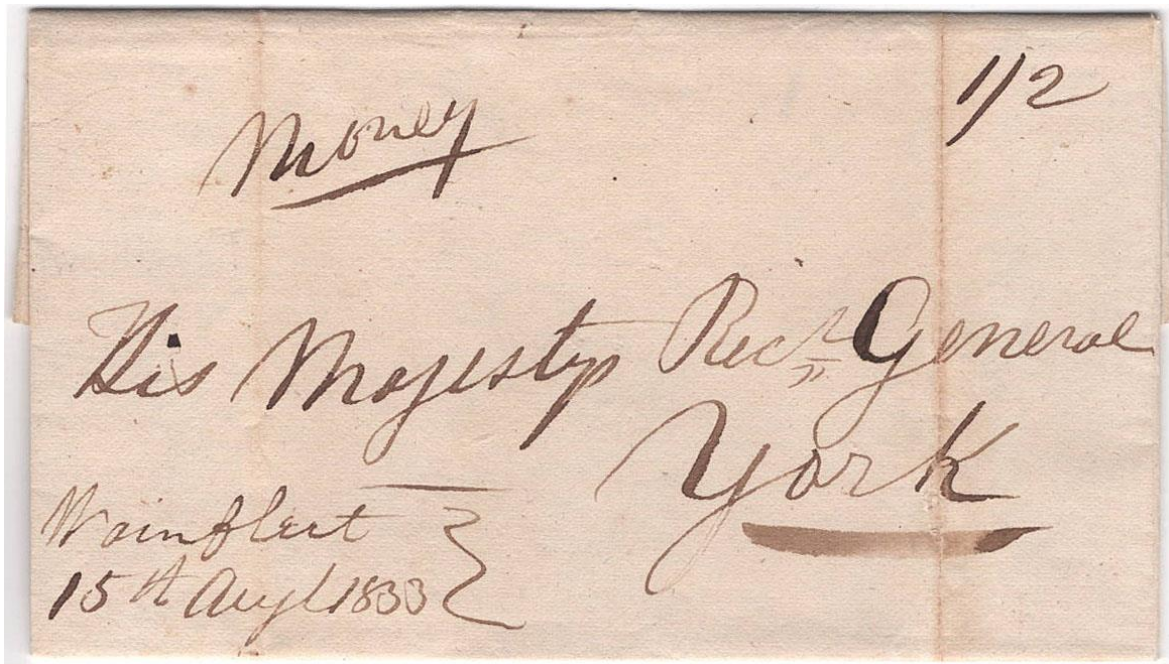 1/2
Money
His Majestys Recr General
York
Wainfleet
15th Augt 1833